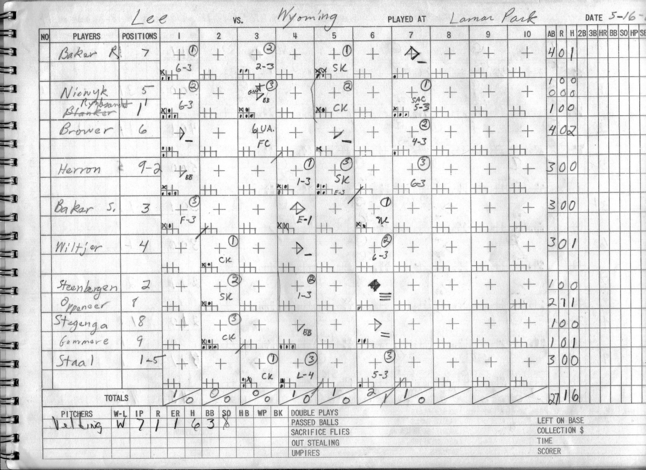 Lee VS. Wyoming PLAYED AT Lamar Park DATE 5-16-
NO PLAYERS POSITIONS 1 2 3 4 5 6 7 8 9 10 AB R H 2B 3B HR BB SO HP
Baker R. 7 6-3 2-3 SK 4 0 1
Nienyk 5 6-3 BB CK SAC 5-3 1 0 0
0 0 0
1 1 0 0
Brower 6 QUA. FC 4-3 4 0 2
Herron 9-2 BB 1-3 SK E-3 6-3 3 0 0
Baker S. 3 F-3 E-1 3 0 0
Wiltjer 4 CK 6-3 3 0 1
Steenbergen 2 SK 1-3 1 0 0
Oppeneer 2 1 1
Stegenga 8 CK BB 1 0 0
Gommers 9 1 0 1
Staal 1-5 CK L-4 5-3 3 0 0
TOTALS 1 0 0 0 0 0 1 0 1 0 2 1 1 0 27 1 6
PITCHERS W-L IP R ER H BB SO HB WP BK DOUBLE PLAYS
W 7 1 1 6 3 PASSED BALLS LEFT ON BASE
SACRIFICE FLIES COLLECTION $
OUT STEALING TIME
UMPIRES SCORER